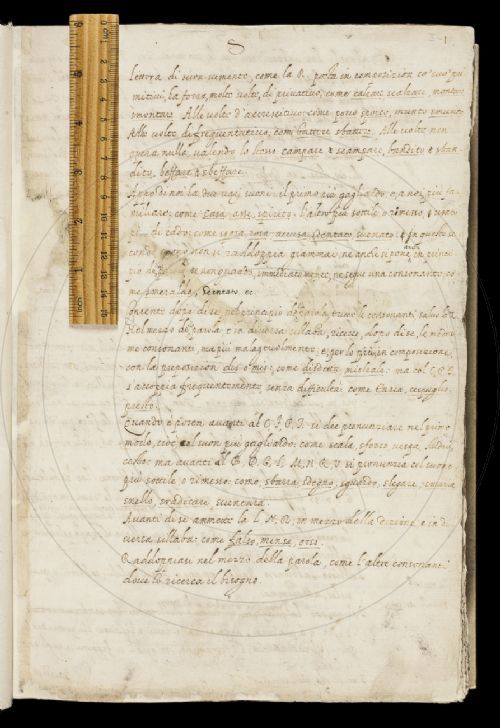 S
lettera di suon sumento, come la R. posta in composizion co' suoi pri
mitivi, ha forza, molte volte, di privativo, come calzati scalzati, montare
smontare. Alle volte d'accrescitivo: come porco sporco, munto smunto
Alle volte di frequentativo, com battere sbattere. Alle volte non
opera nulla, valendo lo stesso campare e scampare, bandito e sban
dito, beffare e sbeffare.
Appo di noi ha due vari suoni, il primo più gagliardo, e a noi più fa
miliare; come casa, asse, spirito, l'altro più sottile o rimesso,
di caldo: come sposa, rosa, accusa sdentato, suenato: e in questo se
condo non si raddoppia giammai, ne anche si pone in princi
pio se non quando, immediatamente, ne segue una consonante, co
me smeraldo, sdentato ec.
Consente dopo di se, nel principio di parola, tutte le consonanti, salvo la Z.
Nel mezzo di parola e in diversa sillaba, riceve, dopo di se, le medesi
me consonanti, ma più malagevolmente: e per lo più in composizione,
con la preposizion dis o mis: come disdetta, misleale: ma col C P T
s'accoppia frequentemente senza difficulta: come cespuglio,
presto.
Quando è posta avanti al C, F, P, T. si dee pronunziare nel primo
modo, cioè col suon più gagliardo: come scala, sforzo
ma avanti al B, D, G, L, M, N, R, V si pronunzia col suono
più sottile, o rimesso: come, sbarra sdegno, sguardo, slegare, smania
snello, sradicare sventura.
Avanti di se ammette la L. N. R. in mezzo della dizione e in di
versa sillaba: come falso, mense, orsi.
Raddoppiasi nel mezzo della parola, come l'altre consonanti
dove lo ricerca il bisogno.